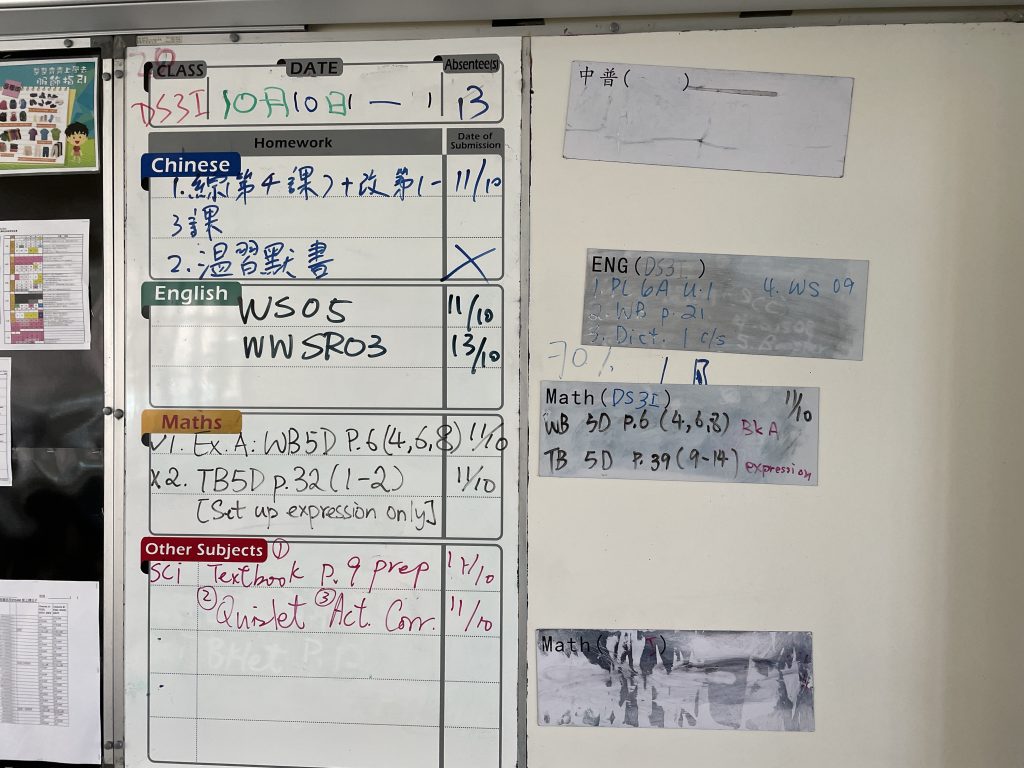 CLASS DATE Absentee(s)
DS3I 10月10日 一 1 13
Homework Date of Submission
Chinese
1. 綜(第4課)+改第1- 11/10
3課
2. 溫習默書 X
English
WS05 11/10
WWSR03 13/10
Maths
√1. Ex. A: WB5D P.6(4,6,8) 11/10
x2. TB5D p.32(1-2) 11/10
[Set up expression only]
Other Subjects ①
Sci Textbook p.9 prep 17/10
② Quizlet ③ Act. Corr. 11/10
服飾指引
中普( )
ENG(DS3I)
1. PL 6A U.1 4. WS 09
2. WB p.21
3. Dict. 1 c/s
70%
Math(DS3I) 11/10
WB 5D P.6 (4,6,8) BkA
TB 5D P.39(9-14) expression
Math( )